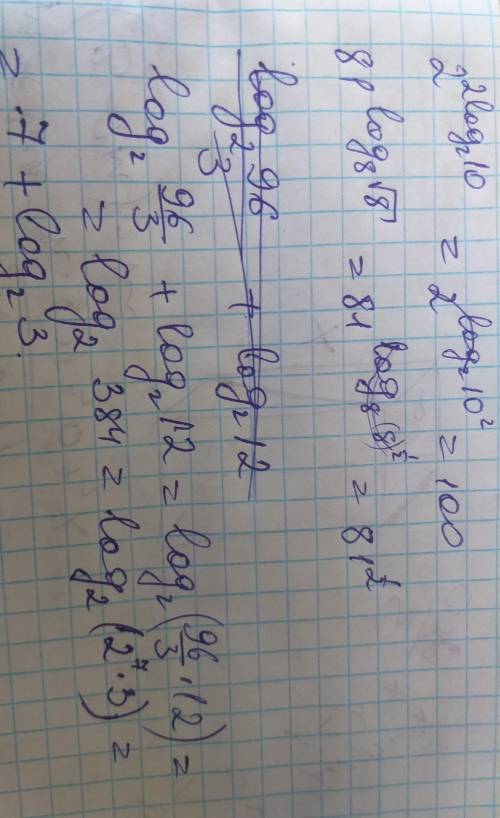 2^{2log_2 10} = 2^{log_2 10^2} = 100
81^{log_8 √8} = 81^{log_8 (8)^{1/2}} = 81^{1/2}
log_2 96/3 + log_2 12
log_2 96/3 + log_2 12 = log_2 (96/3 · 12) =
= log_2 384 = log_2 (2^7 · 3) =
= 7 + log_2 3.